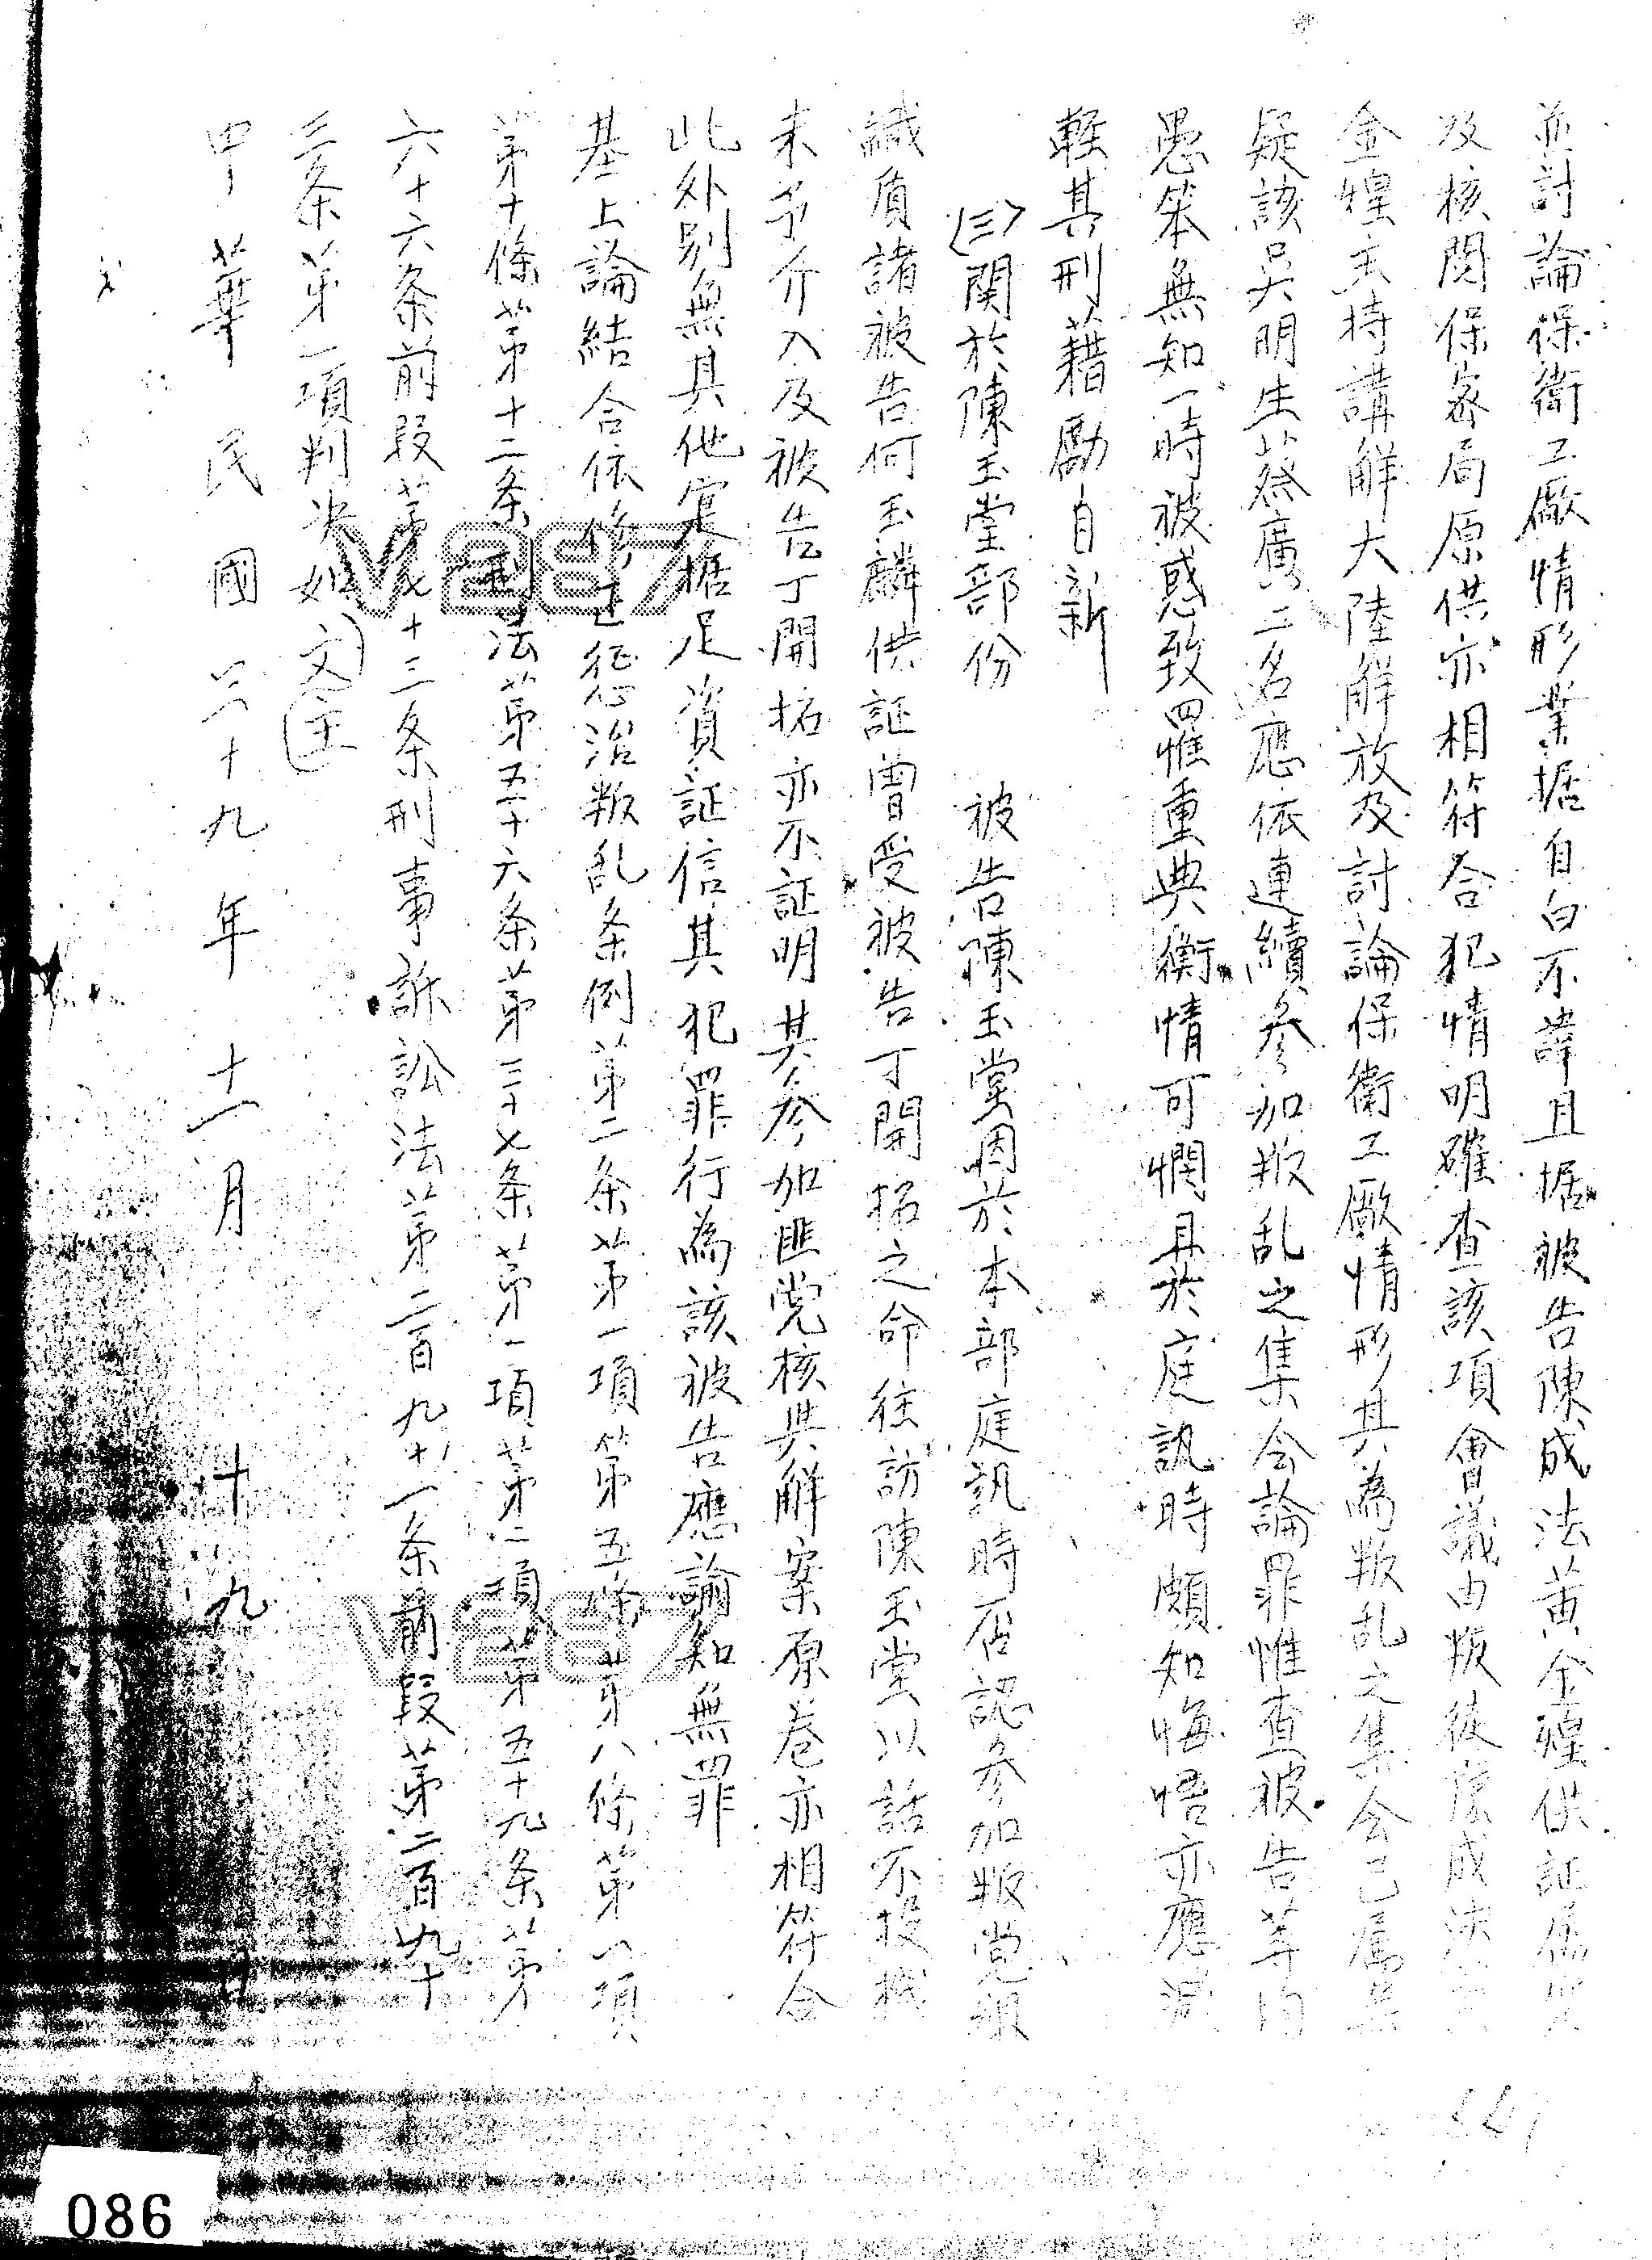 並討論保衛工廠情形業据自白不諱且据被告陳成法黃金煌供証屬實
及核閱保密局原供亦相符合犯情明確查該項會議由叛徒陳成法
金煌主持講解大陸解放及討論保衛工廠情形其為叛乱之集会已屬無
疑該吳明生蔡廣二名應依連續參加叛乱之集会論罪惟查被告等均
愚笨無知一時被惑致罹重典衡情可憫且於庭訊時頗知悔悟亦應減
輕其刑藉勵自新
(三)関於陳玉堂部份 被告陳玉堂因於本部庭訊時否認參加叛党組
織質諸被告何玉麟供証曾受被告丁開拓之命往訪陳玉堂以話不投機
未予介入及被告丁開拓亦不証明其參加匪党核与解案原卷亦相符合
此外別無其他寔据足資証信其犯罪行為該被告應諭知無罪
基上論結合依修正懲治叛乱条例第二条第一項第五条第八條第一項
第十條第十二条刑法第五十六条第三十七条第一項第二項第五十九条第
六十六条前段第七十三条刑事訴訟法第二百九十一条前段第二百九十
三条第一項判决如(主)文
中華民國三十九年十一月十九日
086
V287
V287